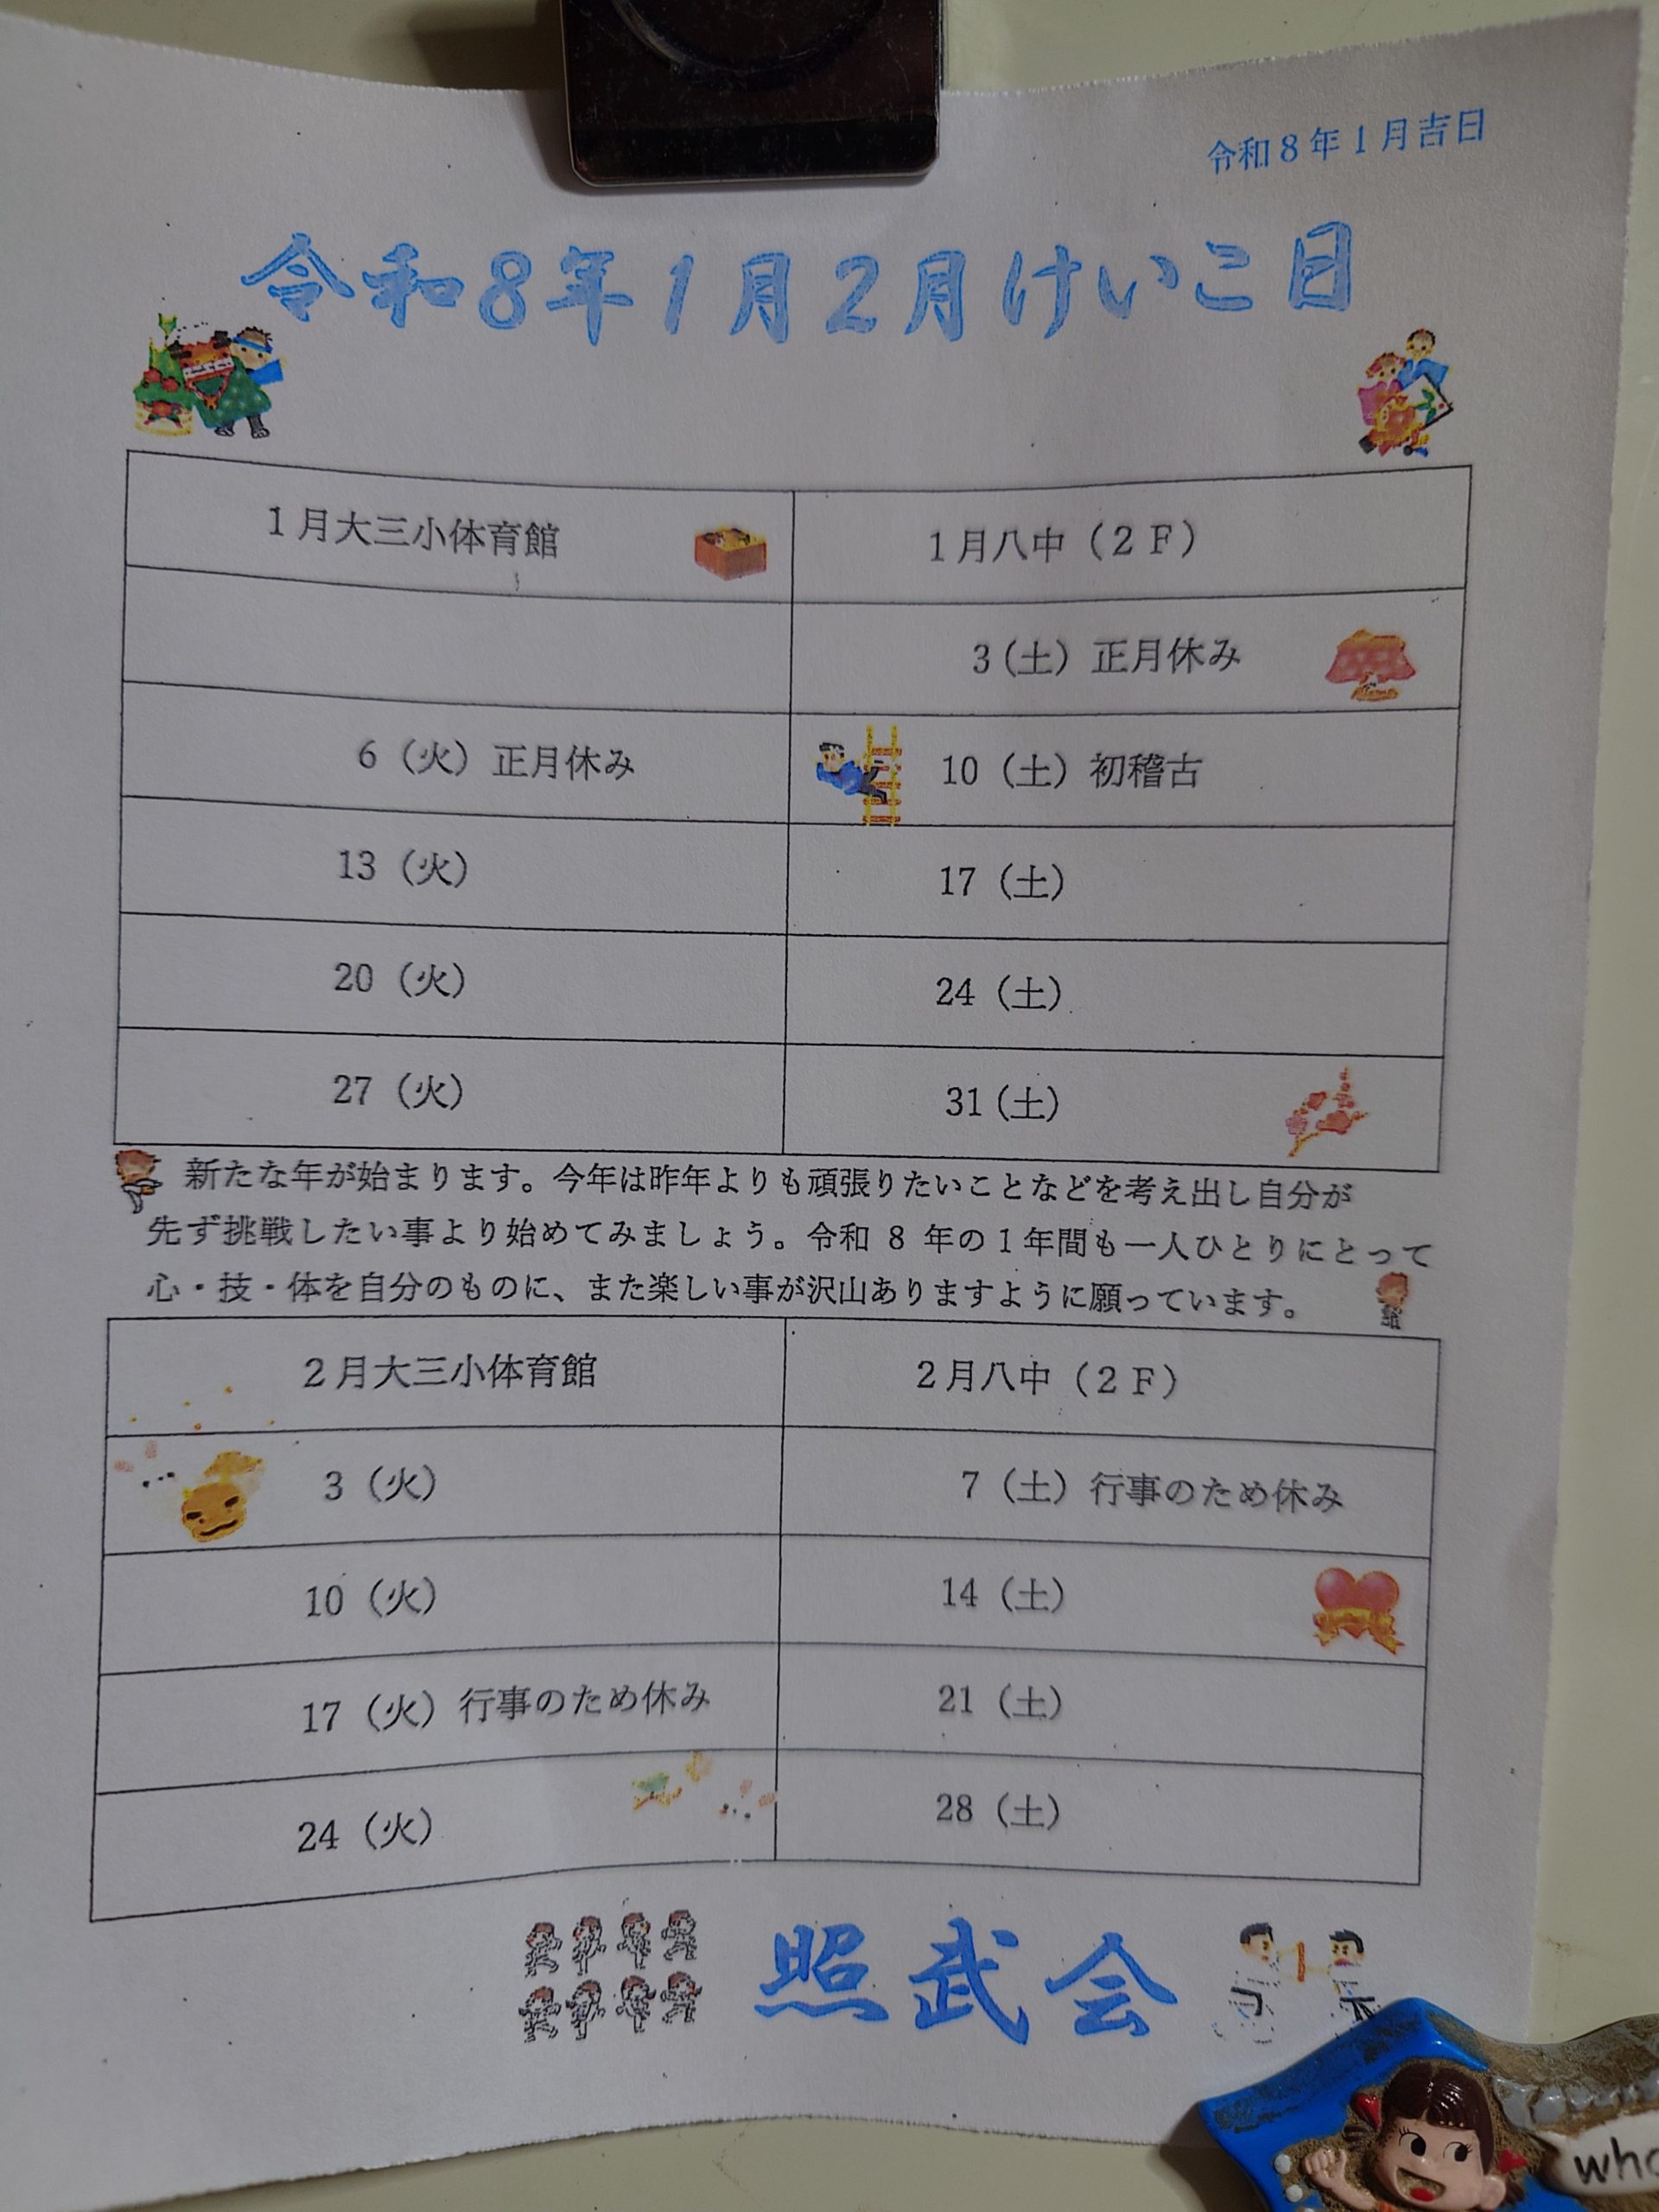 令和8年1月吉日
令和8年1月2月けいこ日
1月大三小体育館 1月八中（2F）
3(土) 正月休み
6（火）正月休み 10（土）初稽古
13（火） 17（土）
20（火） 24（土）
27（火） 31(土)
新たな年が始まります。今年は昨年よりも頑張りたいことなどを考え出し自分が
先ず挑戦したい事より始めてみましょう。令和 8 年の1年間も一人ひとりにとって
心・技・体を自分のものに、また楽しい事が沢山ありますように願っています。
2月大三小体育館 2月八中（2F）
3（火） 7（土）行事のため休み
10（火） 14（土）
17（火）行事のため休み 21（土）
24（火） 28（土）
照武会